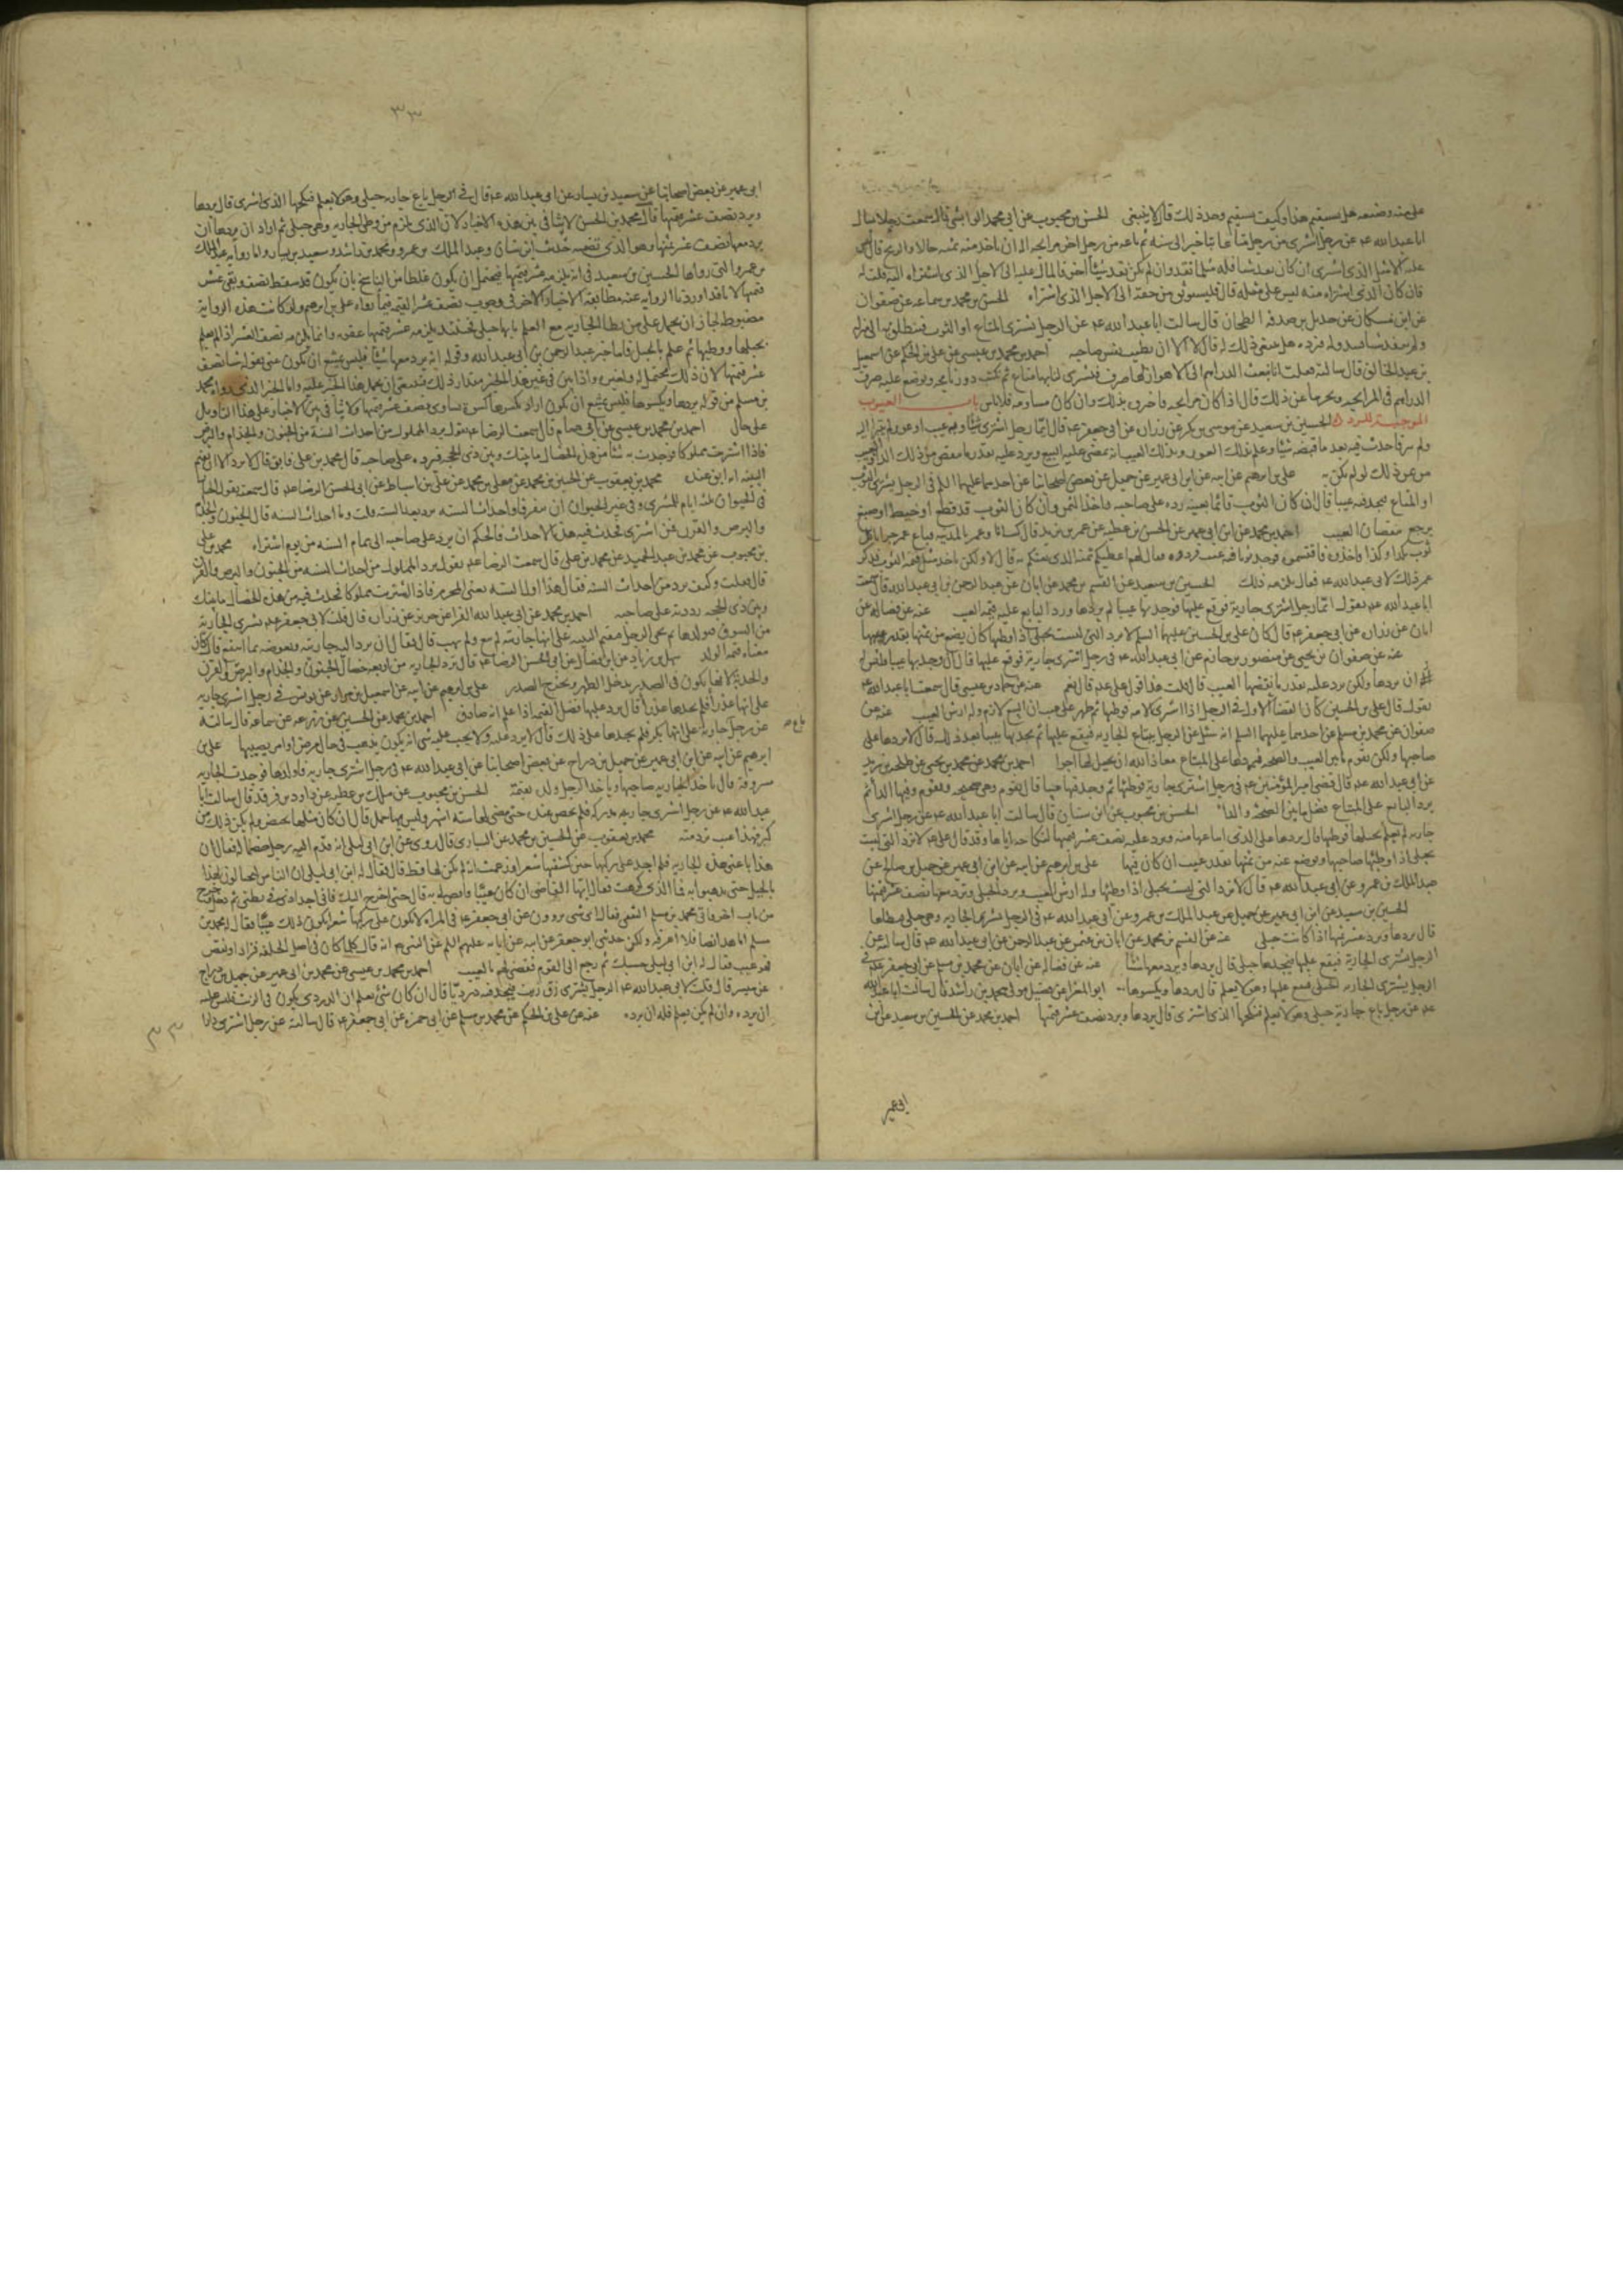 ابا عبد الله عم عن رجل اشترى من رجل متاعا بتاخير الى سنة ثم باعه من رجل اخر مرابحة اله ان ياخذ منه ثمنه حالا والربح قال ليس
عليه الا مثل الذى اشترى ان كان نقد شيئا فله مثل ما نقد وان لم يكن نقد شيئا اخر فالمال عليه الى الاجل الذى اشتراه اليه قلت له
فان كان الذى اشتراه منه ليس على مثله قال فليستوثق من حقه الى الاجل الذى اشتراه الحسن بن محمد بن سماعه عن صفوان
عن ابن مسكان عن هذيل بن صدقه الطحان قال سالت ابا عبد الله عم عن الرجل يشترى المتاع او الثوب فينطلق به الى منزله
ولم ينفد شيئا فيبدو له فيرده هل ينبغى ذلك له قال لا الا ان تطيب نفس صاحبه احمد بن محمد بن عيسى عن على بن الحكم عن اسمعيل
بن عبد الخالق قال سالته فقلت انا نبعث الدراهم الى الاهواز لها صرف فيشترى لنا بها متاع ثم نكتب روزنامجه ونوضع عليه صرف
الدراهم فى المرابحة ويجزينا عن ذلك قال اذا كان مرابحة فاخره بذلك وان كان مساومة فلا باس باب العيوب
الموجبة للرد الحسين بن سعيد عن موسى بن بكر عن زراره عن ابى جعفر عم قال ايما رجل اشترى شيئا وبه عيب او عوار ولم يتبرا اليه
من عوار ذلك لو لم يكن به على بن ابراهيم عن ابيه عن ابن ابى عمير عن جميل عن بعض اصحابنا عن احدهما عليهما السلم فى الرجل يشترى الثوب
او المتاع فيجد فيه عيبا قال ان كان الثوب قائما بعينه رده على صاحبه واخذ الثمن وان كان الثوب قد قطع او خيط او صبغ
يرجع بنقصان العيب احمد بن محمد عن ابن ابى عمير عن الحسن بن عطيه عن عمر بن يزيد قال كنت انا وعمر بالمدينه فباع عمر جرابا كل
ثوب بكذا وكذا فاخذوه فاقتسموه فوجدوا ثوبا فيه عيب فردوه فقال لهم اعطيكم ثمنه الذى بعتكم به قال لا ولكن ناخذ مثل قيمة الثوب فذكر
عمر ذلك لابى عبد الله عم فقال يلزمه ذلك الحسين بن سعيد عن القسم بن محمد عن ابان عن عبد الرحمن بن ابى عبد الله قال سمعت
ابا عبد الله عم يقول ايما رجل اشترى جارية فوقع عليها فوجد بها عيبا لم يردها ورد البايع عليه قيمة العيب عنه عن فضاله عن
ابان عن زراره عن ابى جعفر عم قال كان على بن الحسين عليهما السلم لا يرد التى ليست بحبلى اذا وطئها كان يضع من ثمنها بقدر عيبها
عنه عن صفوان بن يحيى عن منصور بن حازم عن ابى عبد الله عم فى رجل اشترى جارية فوقع عليها قال ان وجد بها عيبا فليس له
ان يردها ولكن يرد عليه بقدر ما نقصها العيب قال قلت هذا قول على عم قال نعم عنه عن حماد بن عيسى قال سمعت ابا عبد الله عم
يقول قال على بن الحسين كان القضاء الاول فى الرجل اذا اشترى الامه فوطئها ثم ظهر على عيب ان البيع لازم وله ارش العيب عنه عن
صفوان عن محمد بن مسلم عن احدهما عليهما السلم انه سئل عن الرجل يبتاع الجارية فيقع عليها ثم يجد بها عيبا بعد ذلك قال لا يردها على
صاحبها ولكن تقوم ما بين العيب والصحه فيرد على المبتاع معاذ الله ان يجعل لها اجرا احمد بن محمد عن محمد بن يحيى عن طلحه بن زيد
عن ابى عبد الله عم قال قضى امير المؤمنين عم فى رجل اشترى جارية فوطئها ثم وجد فيها عيبا قال تقوم وهى صحيحه وتقوم وفيها الداء ثم
يرد البايع على المبتاع فضل ما بين الصحة والداء الحسن بن محبوب عن ابن سنان قال سالت ابا عبد الله عم عن رجل اشترى
جارية لم يعلم بحبلها فوطئها قال يردها على الذى ابتاعها منه ويرد عليه نصف عشر قيمتها لنكاحه اياها وقد قال على عم لا ترد التى ليست
بحبلى اذا وطئها صاحبها ويوضع عنه من ثمنها بقدر عيب ان كان فيها على بن ابراهيم عن ابيه عن ابن ابى عمير عن جميل بن صالح عن
عبد الملك بن عمرو عن ابى عبد الله عم قال لا ترد التى ليست بحبلى اذا وطئها وله ارش العيب وترد الحبلى وترد معها نصف عشر قيمتها
الحسين بن سعيد عن ابن ابى عمير عن جميل عن عبد الملك بن عمرو عن ابى عبد الله عم فى الرجل يشترى الجارية وهى حبلى فيطاها
قال يردها ويرد عشر ثمنها اذا كانت حبلى عنه عن القسم بن محمد عن ابان بن عثمن عن عبد الرحمن بن ابى عبد الله عم قال سالته عن
الرجل يشترى الجارية فيقع عليها فيجدها حبلى قال يردها ويرد معها شيئا عنه عن فضاله عن ابان عن محمد بن مسلم عن ابى جعفر عم فى
الرجل يشترى الجارية الحبلى فيقع عليها وهو لا يعلم قال يردها ويكسوها ابو المغرا عن فضيل مولى محمد بن راشد قال سالت ابا عبد الله
عم عن رجل باع جارية حبلى وهو لا يعلم فنكحها الذى اشترى قال يردها ويرد نصف عشر قيمتها احمد بن محمد عن الحسين بن سعيد عن ابن
ابى عمير
٣٣
ابى عمير عن بعض اصحابنا عن سعيد بن يسار عن ابى عبد الله عم قال فى الرجل باع جارية حبلى وهو لا يعلم فنكحها الذى اشترى قال يردها
ويرد نصف عشر قيمتها قال محمد بن الحسن لا تنافى بين هذه الاخبار لان الذى يلزم من وطى الجارية وهى حبلى ثم اراد ان يردها ان
يرد معها نصف عشر ثمنها وهو الذى تضمنه حديث ابن سنان وعبد الملك بن عمرو ومحمد بن راشد وسعيد بن يسار واما رواية عبد الملك
بن عمرو التى رواها الحسين بن سعيد فى انه يلزمه عشر قيمتها فيحتمل ان يكون غلطا من الناسخ بان يكون قد سقط نصف وبقى عشر
قيمتها لانا قد اوردنا الرواية عنه مطابقة الاخبار الاخر فى وجوب نصف عشر القيمة فيما رواه على بن ابراهيم ولو كانت هذه الرواية
مضبوطة لجاز ان يحمل على من يطا الجارية مع العلم بانها حبلى فحينئذ يلزمه عشر قيمتها عقوبه وانما يلزمه نصف العشر اذا لم يعلم
بحبلها ووطيها ثم علم بالحبل فاما خبر عبد الرحمن بن ابى عبد الله وقوله انه يرد معها شيئا فليس يمتنع ان يكون عنى بقوله شيئا نصف
بن مسلم من قوله يردها ويكسوها فليس يمتنع ان يكون اراد يكسوها كسوة تساوى نصف عشر قيمتها ولا تنافى بين الاخبار وعلى هذا التاويل
على حال احمد بن محمد بن عيسى عن ابى همام قال سمعت الرضا عم يقول يرد المملوك من احداث السنة من الجنون والجذام والبرص
فاذا اشتريت مملوكا فوجدت به شيئا من هذه الخصال ما بينك وبين ذى الحجه فرده على صاحبه قال محمد بن على فابق قال لا يرد الا ان يقيم
البينه انه ابق عنده محمد بن يعقوب عن الحسين بن محمد عن معلى بن محمد عن على بن اسباط عن ابى الحسن الرضا عم قال سمعته يقول الخيار
فى الحيوان ثلثه ايام للمشترى وفى غير الحيوان ان يتفرقا واحداث السنه ترد بعد السنه قلت وما احداث السنه قال الجنون والجذام
والبرص والقرن فمن اشترى فحدث فيه هذه الاحداث فالحكم ان يرد على صاحبه الى تمام السنه من يوم اشتراه محمد بن على
بن محبوب عن محمد بن عبد الحميد عن محمد بن على قال سمعت الرضا عم يقول يرد المملوك من احداث السنه من الجنون والبرص والقرن
قال فقلت وكيف يرد من احداث السنه فقال هذا اول السنه يعنى المحرم فاذا اشتريت مملوكا فحدث فيه من هذه الخصال ما بينك
وبين ذى الحجه رددته على صاحبه احمد بن محمد عن ابى عبد الله الفرا عن حريز عن زراره قال قلت لابى جعفر عم يشترى الجارية
من السوق فيولدها ثم يجى الرجل فيقيم البينه على انها جاريته لم يبع ولم يهب قال فقال ان يرد اليه جاريته ويعوضه بما انتفع قال كان
معناه قيمة الولد سهل بن زياد عن ابن فضال عن ابى الحسن الرضا عم قال ترد الجارية من اربعه خصال الجنون والجذام والبرص والقرن
والحدبة لانها يكون فى الصدر يدخل الظهر ويخرج الصدر على بن ابراهيم عن ابيه عن اسمعيل بن مرار عن يونس فى رجل اشترى جارية
على انها عذراء فلم يجدها عذراء قال يرد عليها فضل القيمة اذا علم انه صادق احمد بن محمد عن الحسين عن زرعه عن سماعة قال سالته
عن رجل جارية على انها بكر فلم يجدها على ذلك قال لا يرد عليه ولا يجب عليه شى انه يكون يذهب فى حال مرض او امر يصيبها على بن
باع صح
ابرهيم عن ابيه عن ابن ابى عمير عن جميل بن دراج عن بعض اصحابنا عن ابى عبد الله عم فى رجل اشترى جارية فاولدها فوجدت الجارية
مسروقة قال ياخذ الجارية صاحبها وياخذ الرجل ولده بقيمته الحسن بن محبوب عن ملك بن عطيه عن داود بن فرقد قال سالت ابا
عبد الله عم عن رجل اشترى جارية مدركه فلم تحض عنده حتى مضى لها سته اشهر وليس بها حمل قال ان كان مثلها تحيض ولم يكن ذلك من
كبر فهذا عيب ترد منه محمد بن يعقوب عن الحسين بن محمد عن السيارى قال روى عن ابن ابى ليلى انه قدم اليه رجل خصما له فقال ان
هذا باعنى هذه الجارية فلم اجد على ركبها حين كشفتها شعرا وزعمت انه لم يكن لها قط قال فقال له ابن ابى ليلى ان الناس ليحتالون لهذا
بالحيل حتى يذهبوا به فما الذى كرهت فقال ايها القاضى ان كان عيبا فاقض لى به قال حتى اخرج اليك فانى اجد اذى فى بطنى ثم دخل وخرج
من باب اخر فاتى محمد بن مسلم الثقفى فقال له اى شى تروون عن ابى جعفر عم فى المراه لا يكون على ركبها شعر ايكون ذلك عيبا فقال له محمد بن
مسلم اما هذا نصا فلا اعرفه ولكن حدثنى ابو جعفر عن ابيه عن ابايه عليهم السلم عن النبى ص انه قال كلما كان فى اصل الخلقه فزاد او نقص
فهو عيب فقال له ابن ابى ليلى حسبك ثم رجع الى القوم فقضى لهم بالعيب احمد بن محمد بن عيسى عن محمد بن ابى عمير عن جميل بن دراج
عن ميسر قال قلت لابى عبد الله عم الرجل يشترى زق زيت فيجد فيه درديا قال ان كان شى يعلم ان الدردى يكون فى الزيت فليس عليه
ان يرده وان لم يكن يعلم فله ان يرده عنه عن على بن الحكم عن محمد بن مسلم عن ابى حمزه عن ابى جعفر عم قال سالته عن رجل اشترى دارا
٣٣